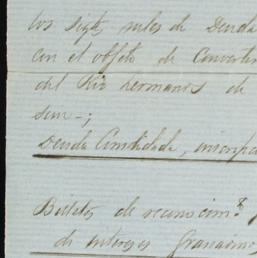 los siete rules de Deuda
con el objeto de Converti
del Rio hermanos de
sen-;
Deuda Consolidada, inscrip
Billetes de reconocim.º
de intereses granadino